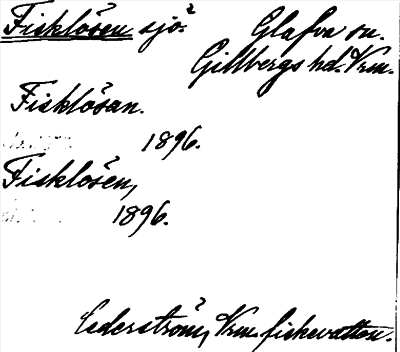 Fisklösen sjö? Glafva sn.
Gillbergs hd. Vrm.
Fisklösan.
1896.
Fisklösen,
1896.
Cederström, Vrm. fiskevatten.